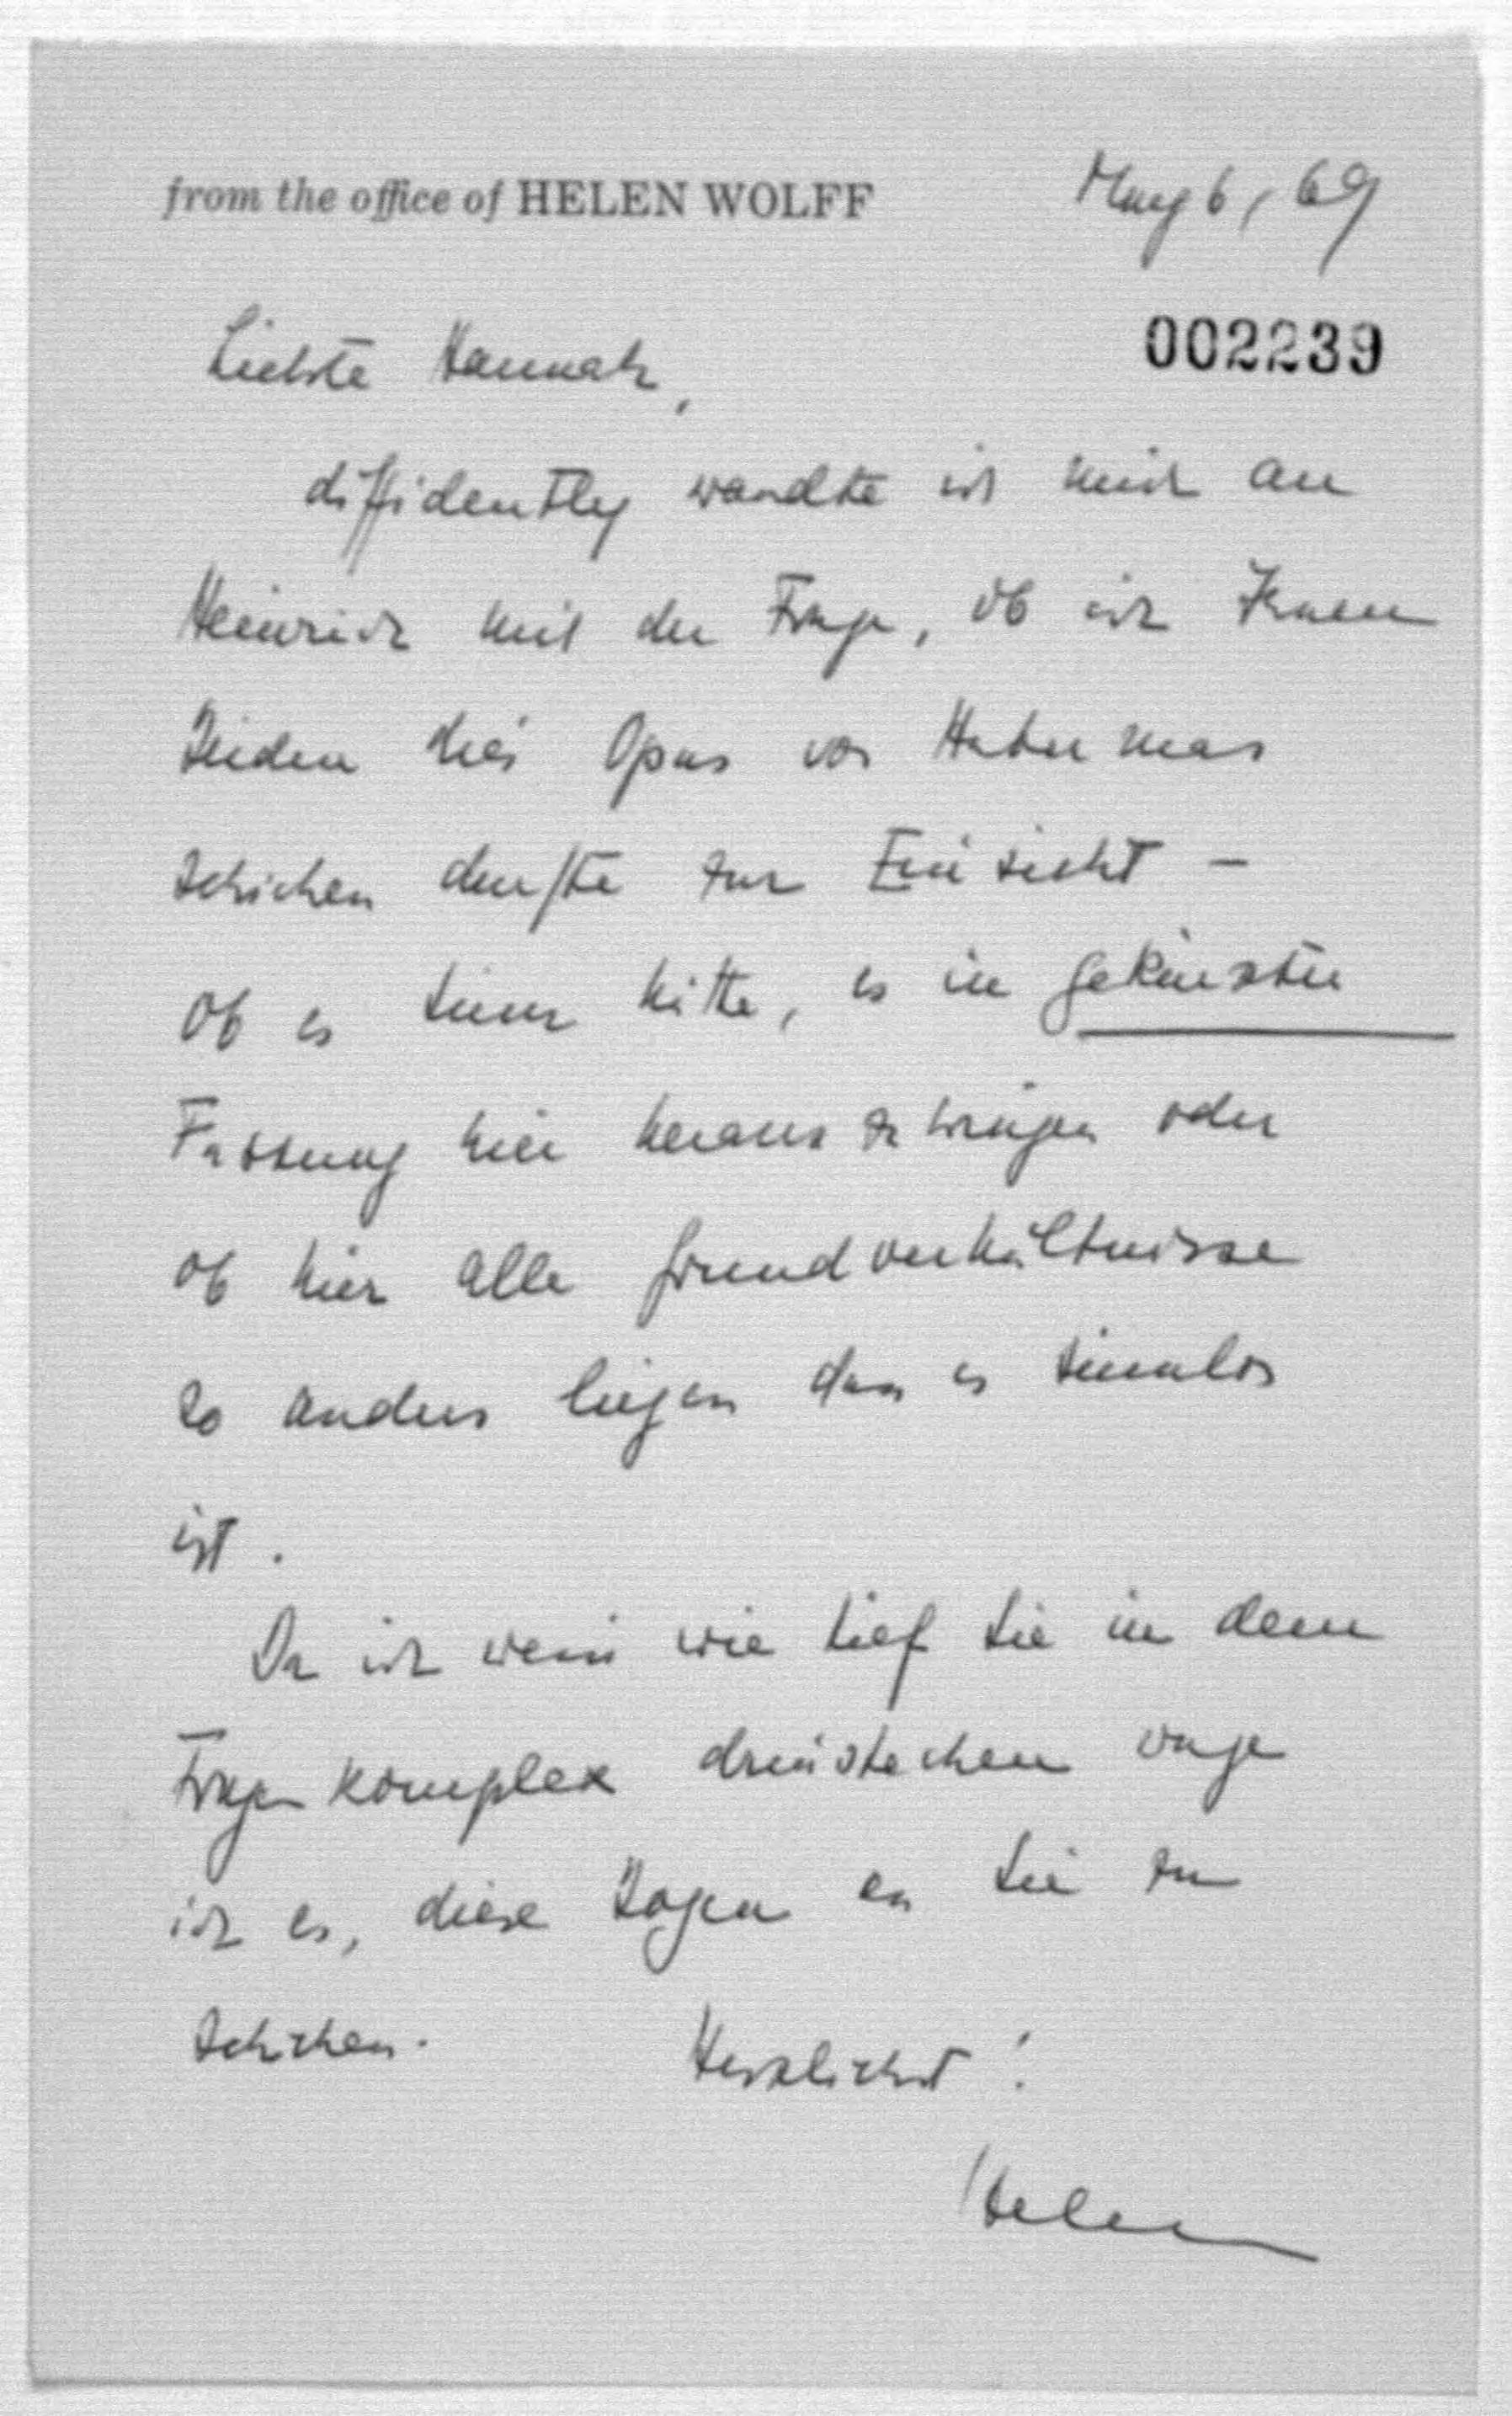 from the office of HELEN WOLFF
May 6, 69
002239
Liebste Hannah,
diffidently wandte ich mich an
Heinrich mit der Frage, ob ich Ihnen
Beiden dies Opus von Habermas
schicken duerfte zur Einsicht –
ob es Sinn hätte, es in gekürzter
Fassung hier herauszubringen oder
ob hier alle Grundverhältnisse
so anders liegen dass es sinnlos
ist.
Da ich weiss wie tief Sie in dem
Fragenkomplex drinstecken wage
ich es, diese Bogen an Sie zu
schicken.
Herzlichst!
Helen